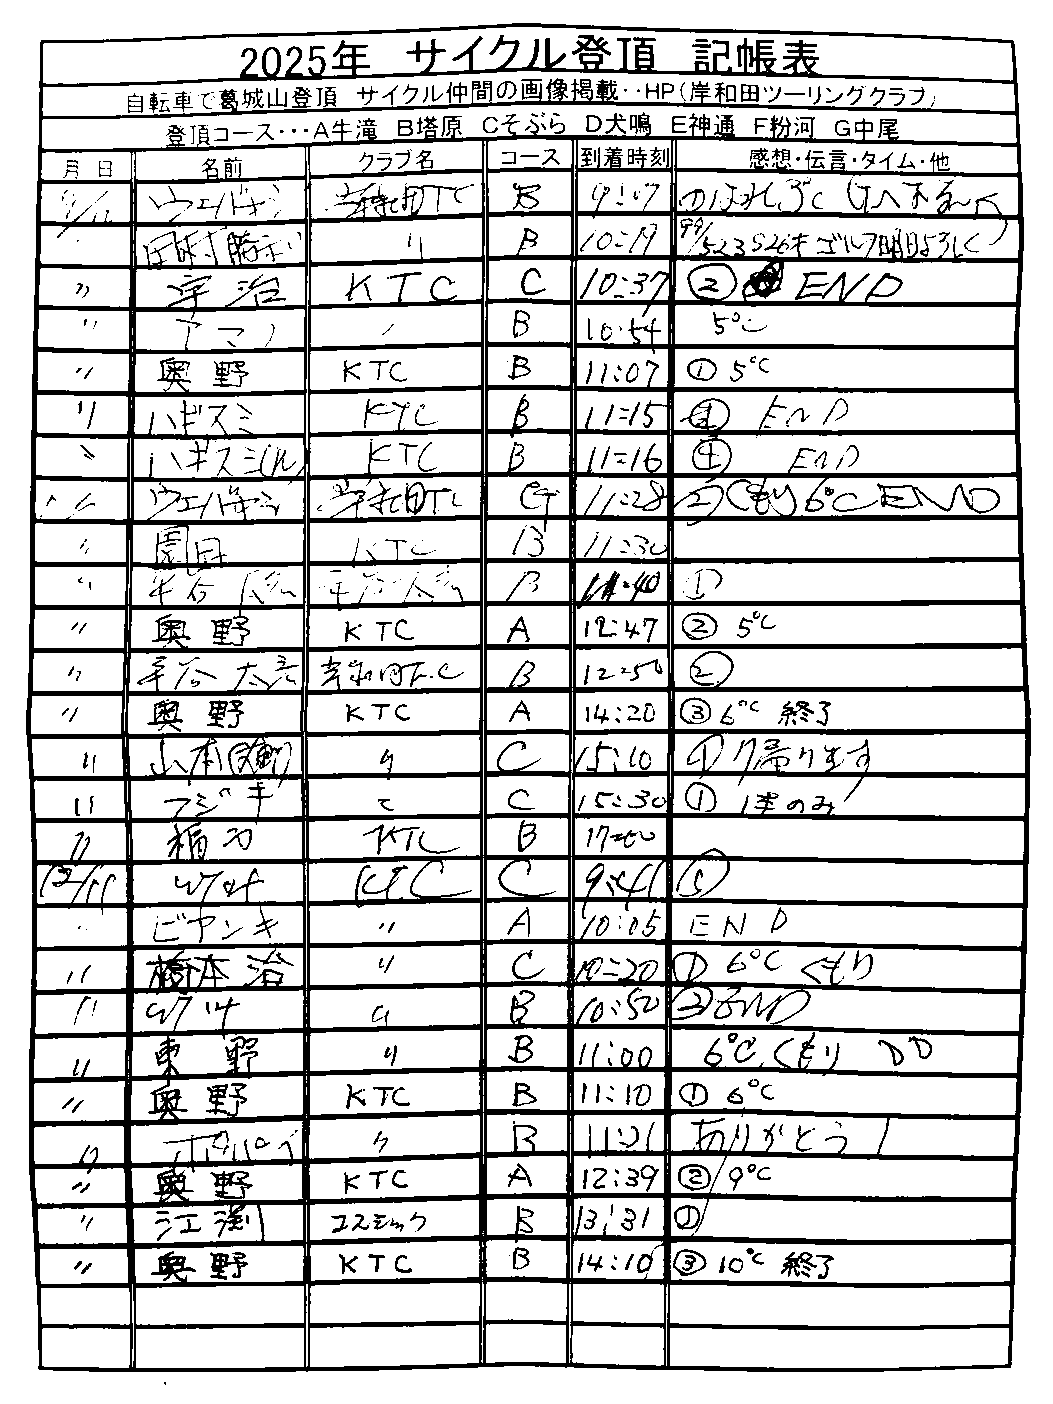 2025年 サイクル登頂 記帳表
自転車で葛城山登頂 サイクル仲間の画像掲載‥HP(岸和田ツーリングクラブ)
登頂コース･･･A牛滝 B塔原 Cそぶら D犬鳴 E神通 F粉河 G中尾
月 日 名前 クラブ名 コース 到着時刻 感想・伝言・タイム・他
B 9:07
〃 B 10:19 ゴルフ明日よろしく
〃 宇治 KTC C 10:37 ② END
〃 アマノ B 10:54 5℃
〃 奥野 KTC B 11:07 ① 5℃
〃 ハギスミ KTC B 11:15 END
〃 ハギスミ KTC B 11:16 ④ END
G 11:28 ② くもり 6℃ END
〃 園田 KTC B 11:30
〃 B ①
〃 奥野 KTC A 12:47 ② 5℃
〃 平谷 太彦 岸和田T.C B 12:50 ②
〃 奥野 KTC A 14:20 ③ 6℃ 終了
〃 山本 〃 C 15:10 ① 帰ります
〃 フジキ C 15:30 ① 1本のみ
〃 KTC B
12/11 KTC C 9:41 ①
ビアンキ 〃 A 10:05 END
〃 橋本 治 〃 C 10:20 ① 6℃ くもり
〃 〃 B 10:50 ② END
〃 東野 〃 B 11:00 6℃ くもり
〃 奥野 KTC B 11:10 ① 6℃
〃 ポパイ 〃 B 11:21 ありがとう
〃 奥野 KTC A 12:39 ② 9℃
〃 江渕 コスミック B 13:31 ①
〃 奥野 KTC B 14:10 ③ 10℃ 終了